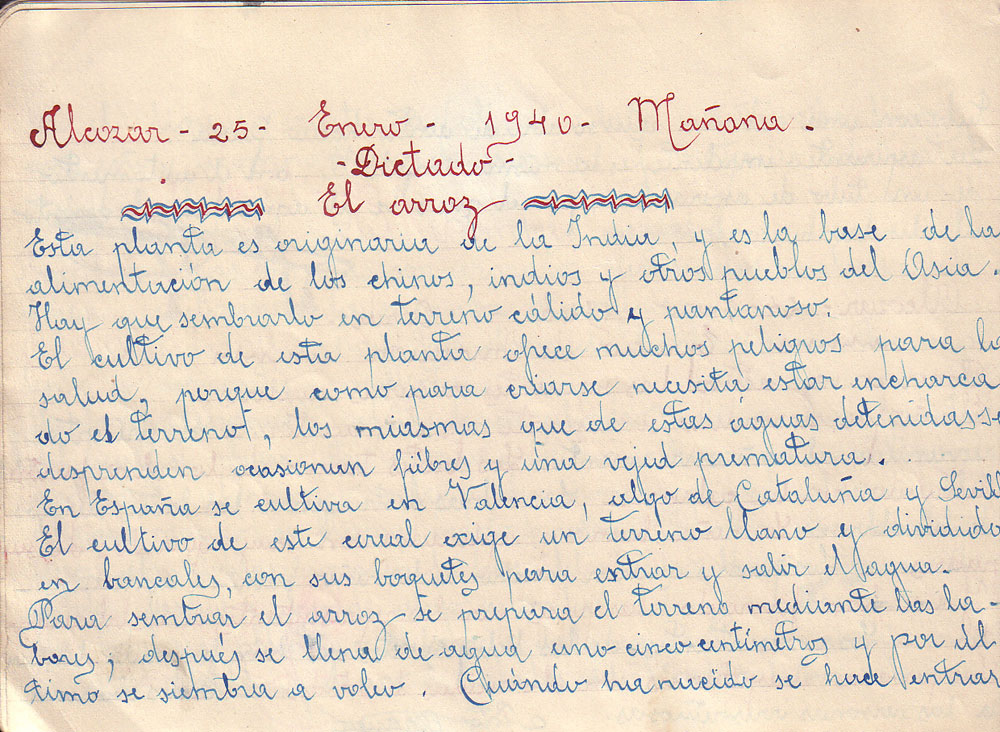 Alcozar - 25 - Enero - 1940 - Mañana.
- Dictado -
El arroz
Esta planta es originaria de la India, y es la base de la
alimentación de los chinos, indios y otros pueblos del Asia.
Hay que sembrarlo en terreno cálido y pantanoso.
El cultivo de esta planta ofece muchos peligros para la
salud, porque como para criarse necesita estar encharca
do el terreno, los miasmas que de estas águas detenidas se
desprenden ocasionan fiébres y una vejud prematura.
En España se cultiva en Valencia, algo de Cataluña y Sevill
El cultivo de este cereal exige un terreno llano y dividido
en bancales, con sus boquetes para entrar y salir el agua.
Para sembrar el arroz se prepara el terreno mediante las la-
bores, después se llena de agua uno cinco centímetros y por úl
timo se siembra a voleo. Cuándo ha nacido se hace entrar